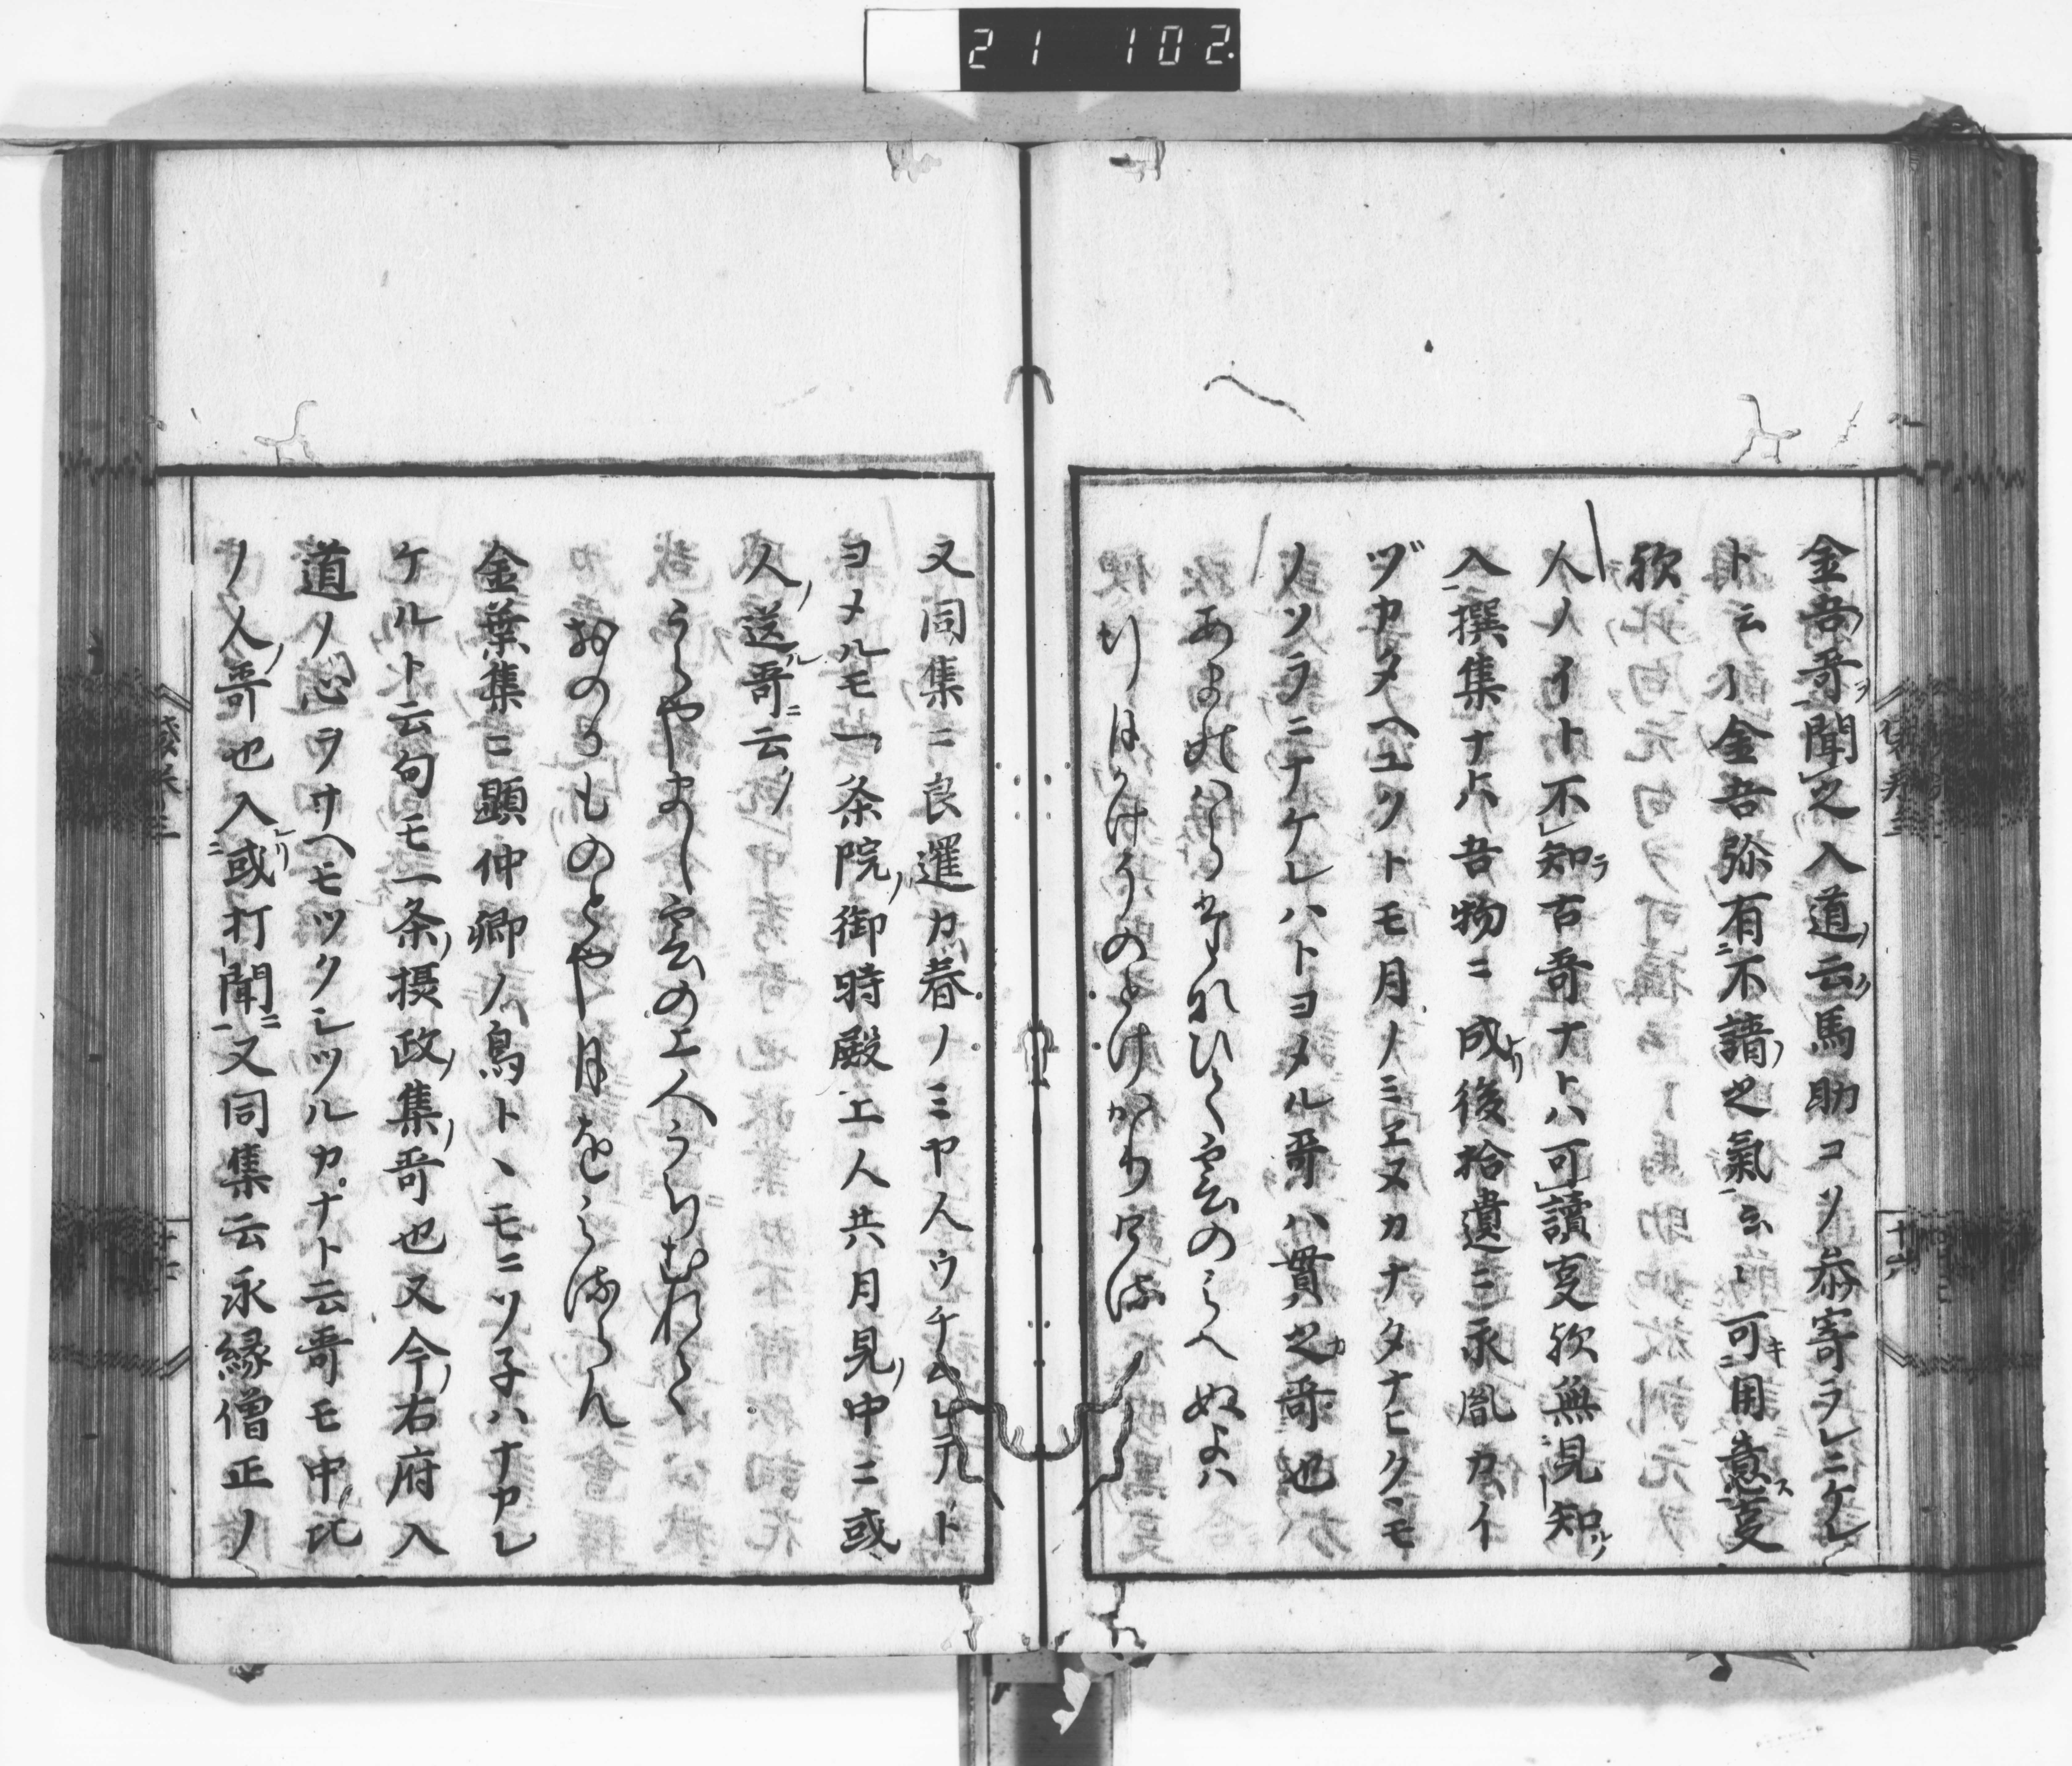 21 102
金吾哥ヲ聞之入道ノ云ク馬助コソ参寄ラレニケレ
ト云々金吾弥有不請之氣云々可キ用意ス㕝
欤
人ノイト不知ラ古哥ナトハ可讀㕝欤無見知ル
入撰集ナトハ吾物ニ成ナリ後拾遺ニ永胤カイ
ヅカタヘユクトモ月ノミエヌカナタナヒクモ
ノソラニナケレハトヨメル哥ハ貫之カ哥也
あまのはらたなひく雲のみえぬよは
行月かけそのとけかりける
又同集ニ良暹カ春ノミヤ人ウチムレテト
ヨメルモ一条院ノ御時殿上人共月見ノ中ニ或
人ノ送ル哥ニ云ク
うらやまし雲の上人うちむれて
おのかものとや月をみるらん
金葉集ニ顕仲卿ノ鳥トヽモニソ子ハナカレ
ケルト云句モ一条ノ摂政ノ集ノ哥也又今ノ右府入
道ノ心ヲサヘモツクシツルカナト云哥モ中比
ノ人ノ哥也入レリ或打聞ニ又同集云永縁僧正ノ